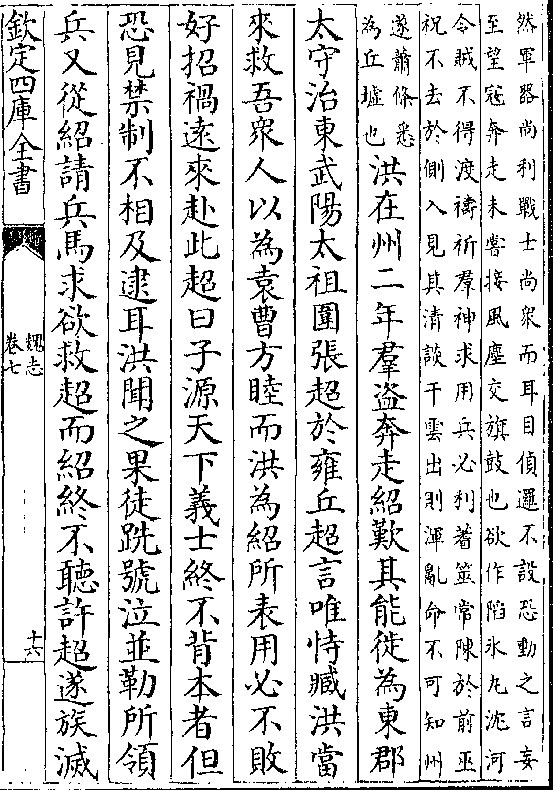 然軍器尚利戰士尚衆而耳目偵邏不設恐動之言妄
至望冦奔走未嘗接風塵交旗鼓也欲作陷氷丸沈河
令賊不得渡禱祈羣神求用兵必利蓍筮常陳於前巫
祝不去於側入見其清談干雲出則渾亂命不可知州
遂蕭條悉
為丘墟也
洪在州二年羣盜奔走紹歎其能徙為東郡
太守治東武陽太祖圍張超於雍丘超言唯恃臧洪當
來救吾衆人以為袁曹方睦而洪為紹所表用必不敗
好招禍逺來赴此超曰子源天下義士終不背本者但
恐見禁制不相及逮耳洪聞之果徒跣號泣並勒所領
兵又從紹請兵馬求欲救超而紹終不聽許超遂族滅
欽定四庫全書
魏志
卷七
十六